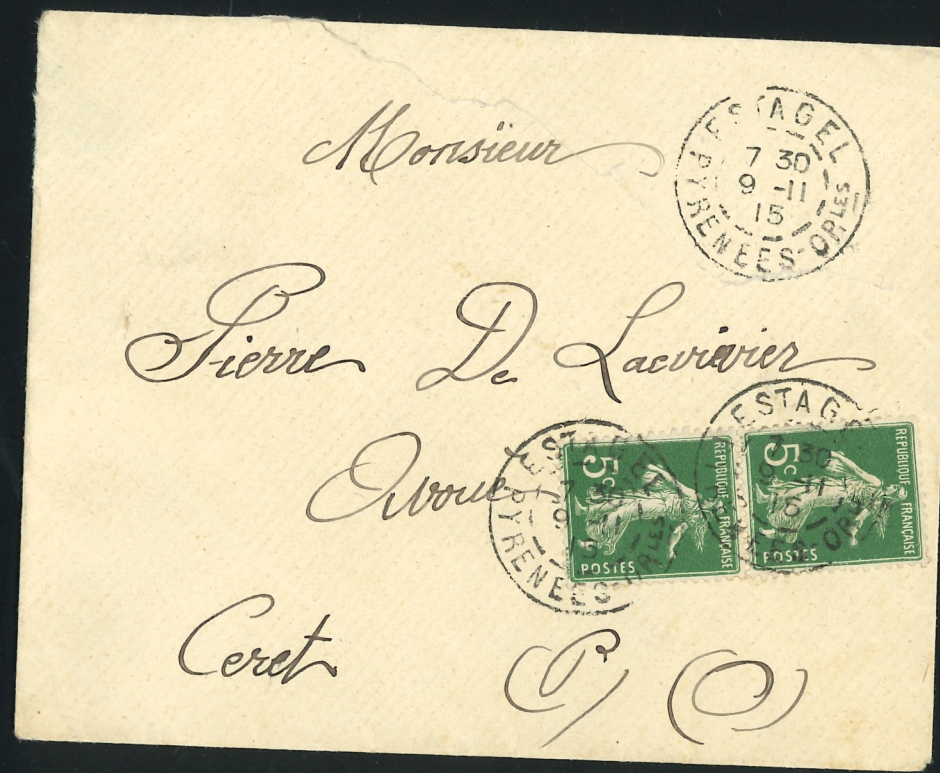 Monsieur
ESTAGEL
7 30
9 -11
15
PYRENEES-ORLES
Pierre De Lacvivier
Avoué
ESTAGEL
7 30
9 -11
15
PYRENEES-ORLES
5c
REPUBLIQUE FRANÇAISE
POSTES
ESTAGEL
7 30
9 -11
15
PYRENEES-ORLES
5c
REPUBLIQUE FRANÇAISE
POSTES
Ceret (P) (O)